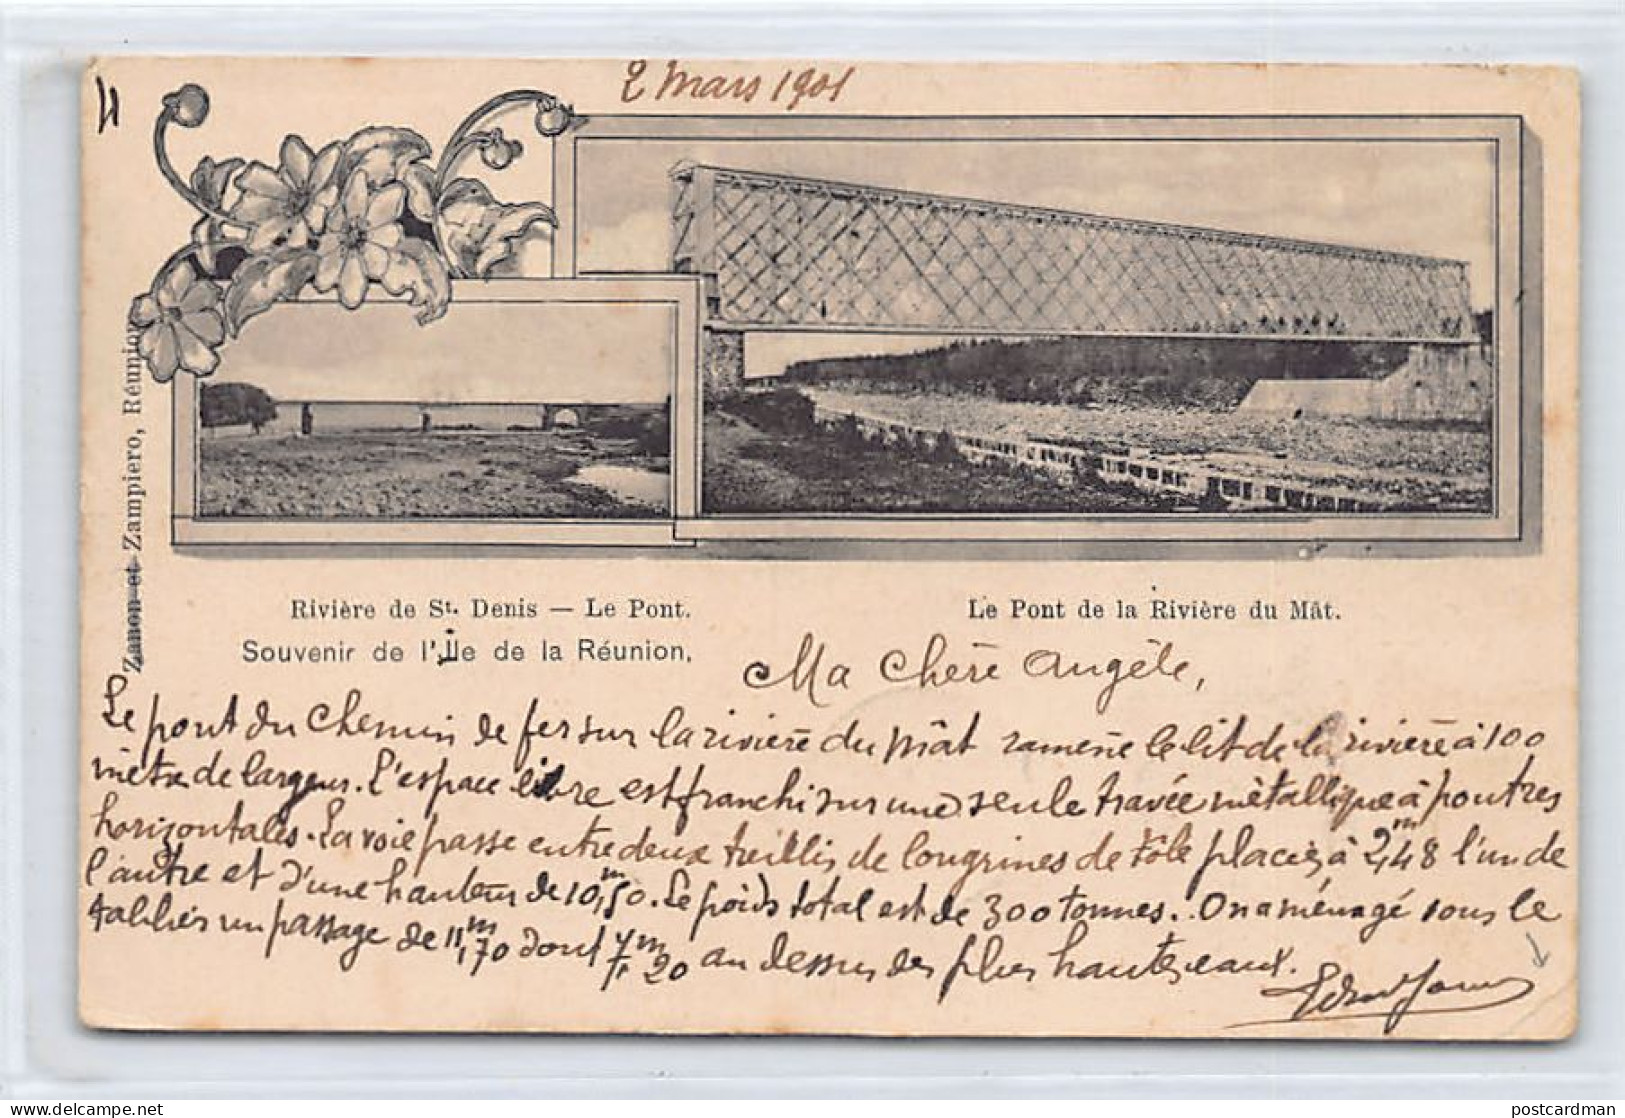 2 Mars 1901
4
Zanon et Zampiero, Réunion
Rivière de St. Denis — Le Pont.
Le Pont de la Rivière du Mât.
Souvenir de l'Ile de la Réunion.
Ma Chère Angèle,
Le pont du Chemin de fer sur la rivière du Mât ramène le lit de la rivière à 100
mètre de largeur. L'espace libre est franchi sur une seule travée métallique à poutres
horizontales. La voie passe entre deux treillis de longrines de tôle placées à 2,m48 l'un de
l'autre et d'une hauteur de 10,m50. Le poids total est de 300 tonnes. On a ménagé sous le
tablier un passage de 11,m70 dont 7,m20 au dessus des plus hautes eaux.
postcardman